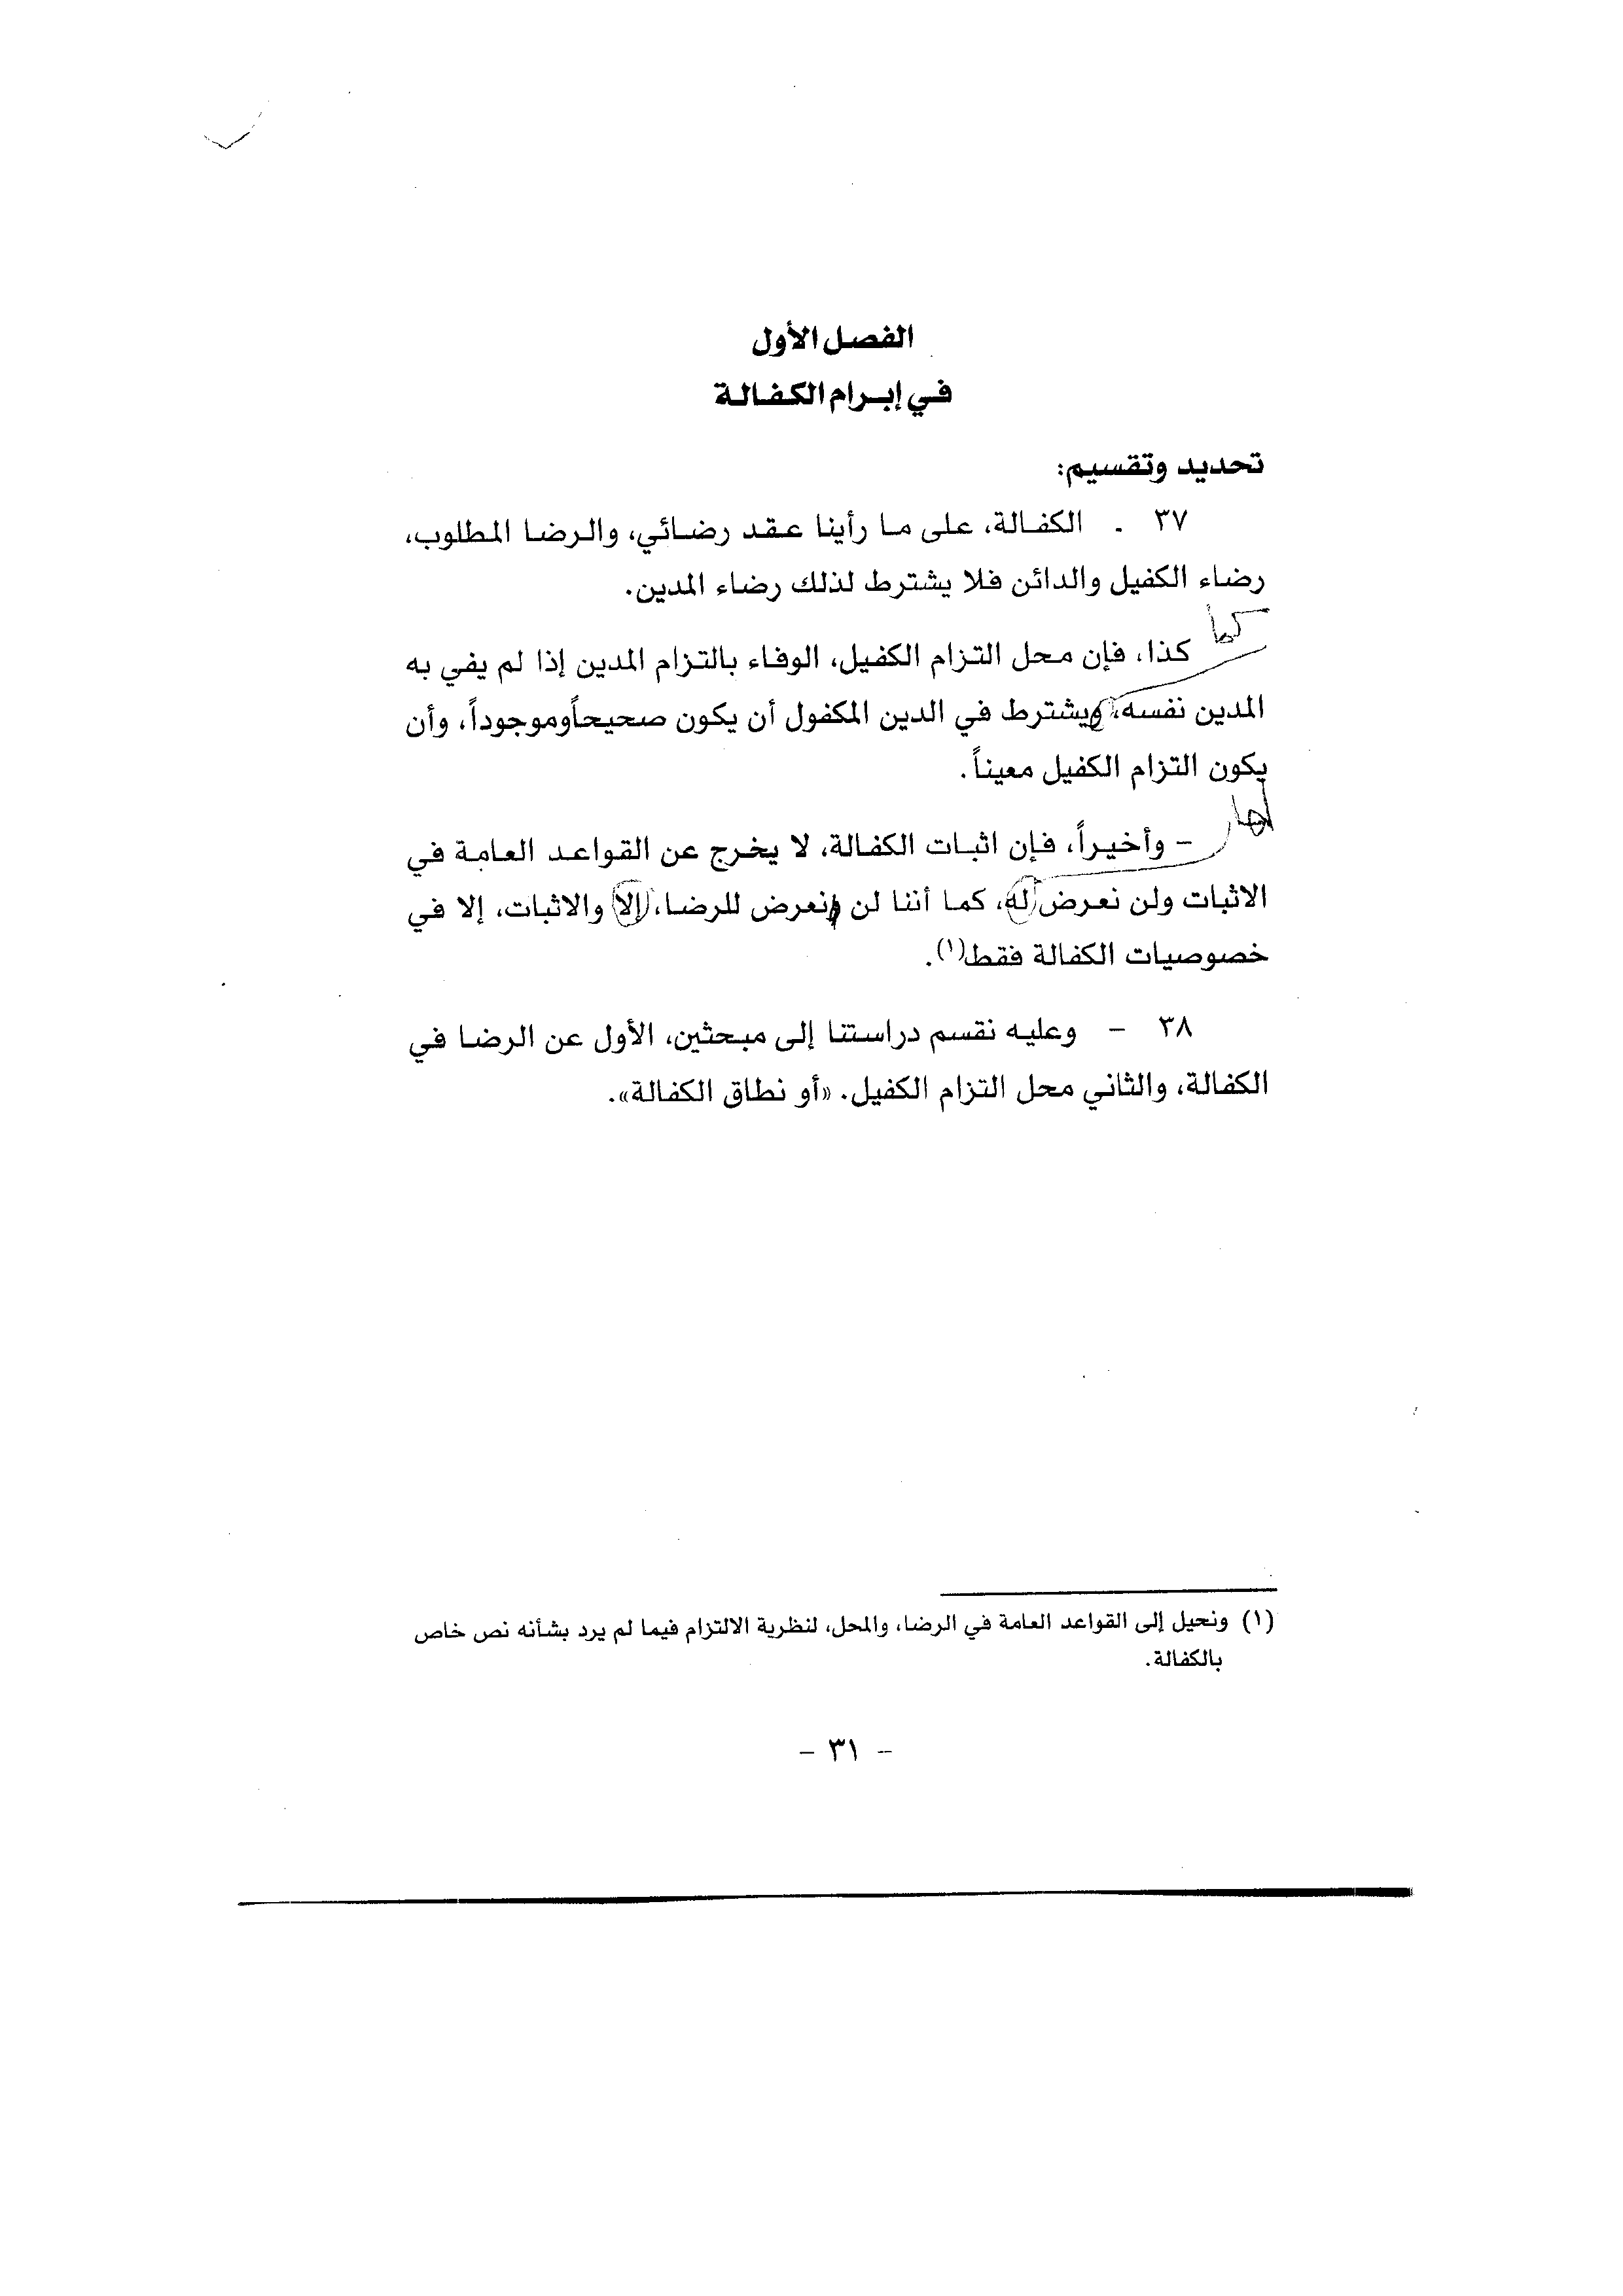 الفصل الأول
في إبرام الكفالة
تحديد وتقسيم:
٣٧ . الكفالة، على ما رأينا عقد رضائي، والرضا المطلوب،
رضاء الكفيل والدائن فلا يشترط لذلك رضاء المدين.
كما
كذا، فإن محل التزام الكفيل، الوفاء بالتزام المدين إذا لم يفي به
المدين نفسه، ويشترط في الدين المكفول أن يكون صحيحاًوموجوداً، وأن
يكون التزام الكفيل معيناً.
لها
– وأخيراً، فإن اثبات الكفالة، لا يخرج عن القواعد العامة في
الاثبات ولن نعرض له، كما أننا لن نعرض للرضا، إلا والاثبات، إلا في
خصوصيات الكفالة فقط(١).
٣٨ – وعليه نقسم دراستنا إلى مبحثين، الأول عن الرضا في
الكفالة، والثاني محل التزام الكفيل. «أو نطاق الكفالة».
(١) ونحيل إلى القواعد العامة في الرضا، والمحل، لنظرية الالتزام فيما لم يرد بشأنه نص خاص
بالكفالة.
– ٣١ –